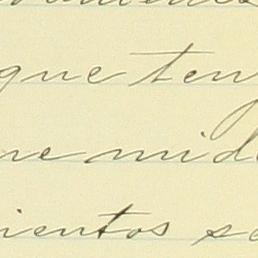 que ten
ne mid
ientos s